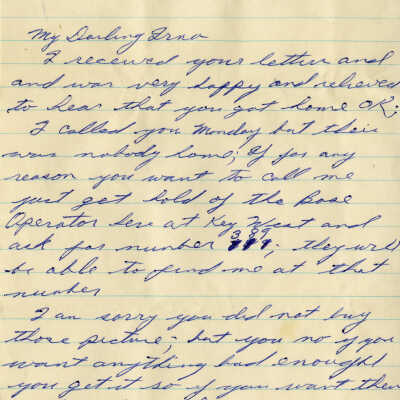 My Darling Erna
I received your letter and
and was very happy and relieved
to hear that you got home OK;
I called you Monday but their
was nobody home; If for any
reason you want to call me
just get hold of the Base
Operator here at Key West and
ask for number 389; they will
be able to find me at that
number
I am sorry you did not buy
those picture; but you no if you
want anything bad enought
you get it so if you want them